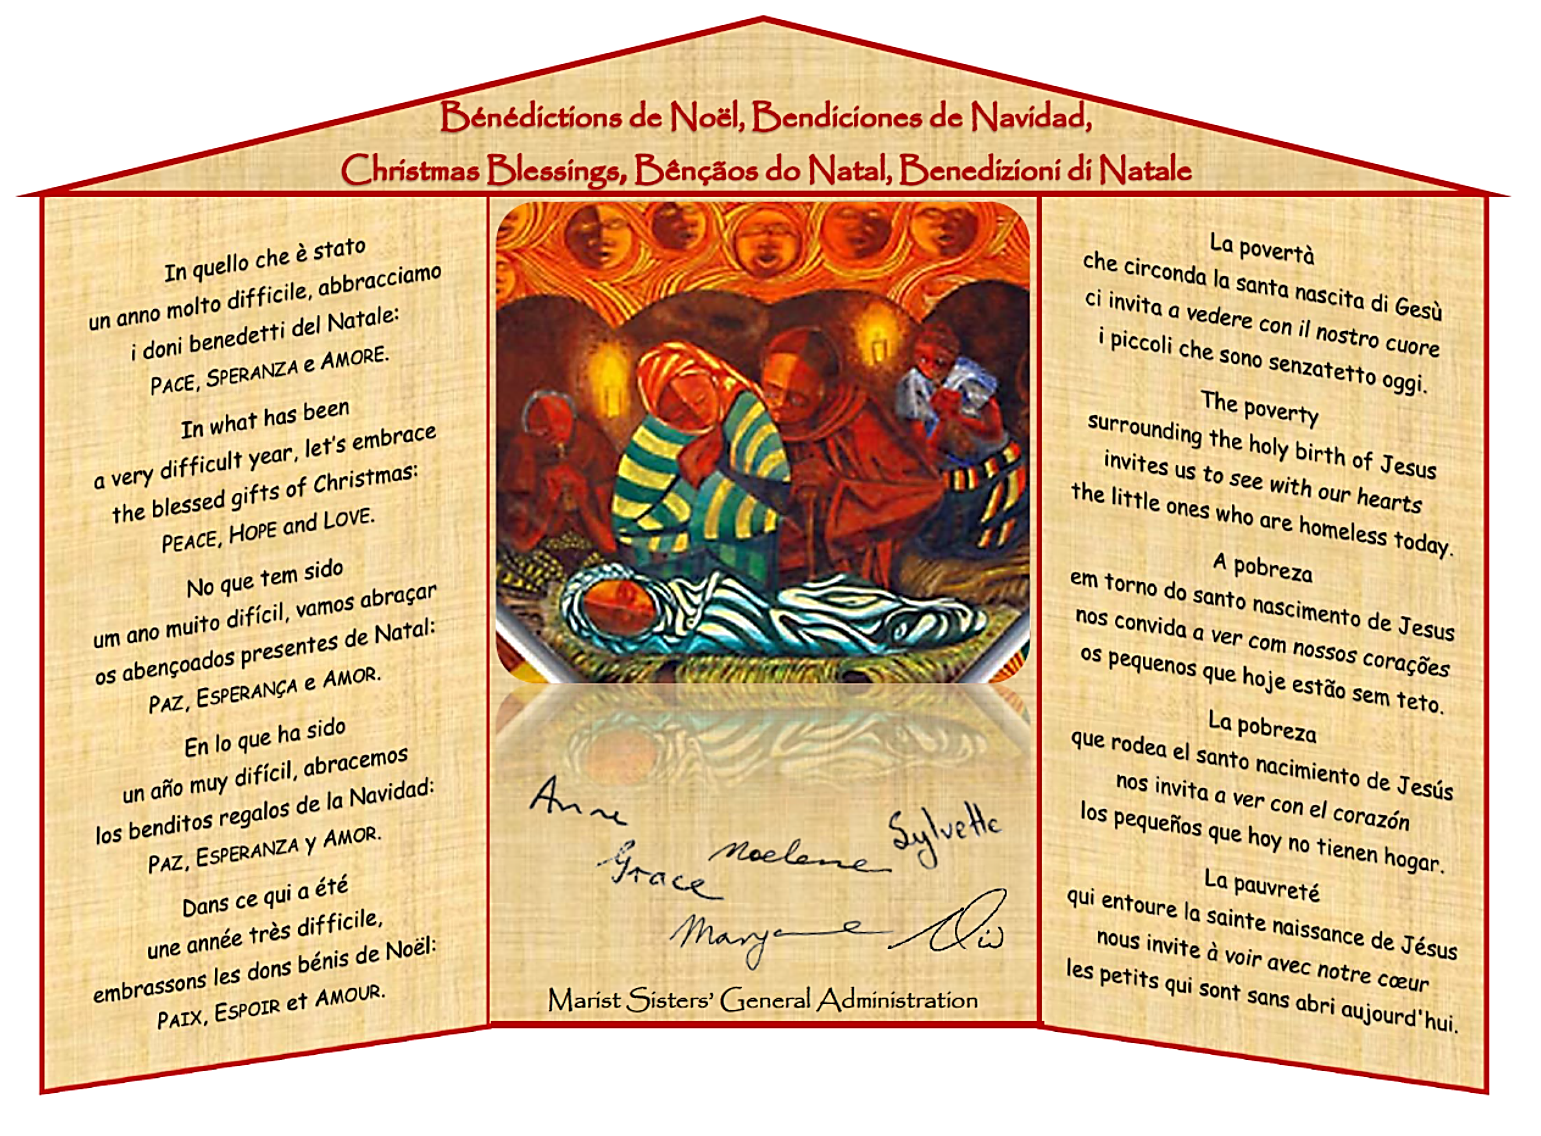 Bénédictions de Noël, Bendiciones de Navidad,
Christmas Blessings, Bênçãos do Natal, Benedizioni di Natale
In quello che è stato
un anno molto difficile, abbracciamo
i doni benedetti del Natale:
PACE, SPERANZA e AMORE.
In what has been
a very difficult year, let's embrace
the blessed gifts of Christmas:
PEACE, HOPE and LOVE.
No que tem sido
um ano muito difícil, vamos abraçar
os abençoados presentes de Natal:
PAZ, ESPERANÇA e AMOR.
En lo que ha sido
un año muy difícil, abracemos
los benditos regalos de la Navidad:
PAZ, ESPERANZA y AMOR.
Dans ce qui a été
une année très difficile,
embrassons les dons bénis de Noël:
PAIX, ESPOIR et AMOUR.
Anne
Grace
Noelene
Sylvette
Maryanne
Marist Sisters' General Administration
La povertà
che circonda la santa nascita di Gesù
ci invita a vedere con il nostro cuore
i piccoli che sono senzatetto oggi.
The poverty
surrounding the holy birth of Jesus
invites us to see with our hearts
the little ones who are homeless today.
A pobreza
em torno do santo nascimento de Jesus
nos convida a ver com nossos corações
os pequenos que hoje estão sem teto.
La pobreza
que rodea el santo nacimiento de Jesús
nos invita a ver con el corazón
los pequeños que hoy no tienen hogar.
La pauvreté
qui entoure la sainte naissance de Jésus
nous invite à voir avec notre cœur
les petits qui sont sans abri aujourd'hui.